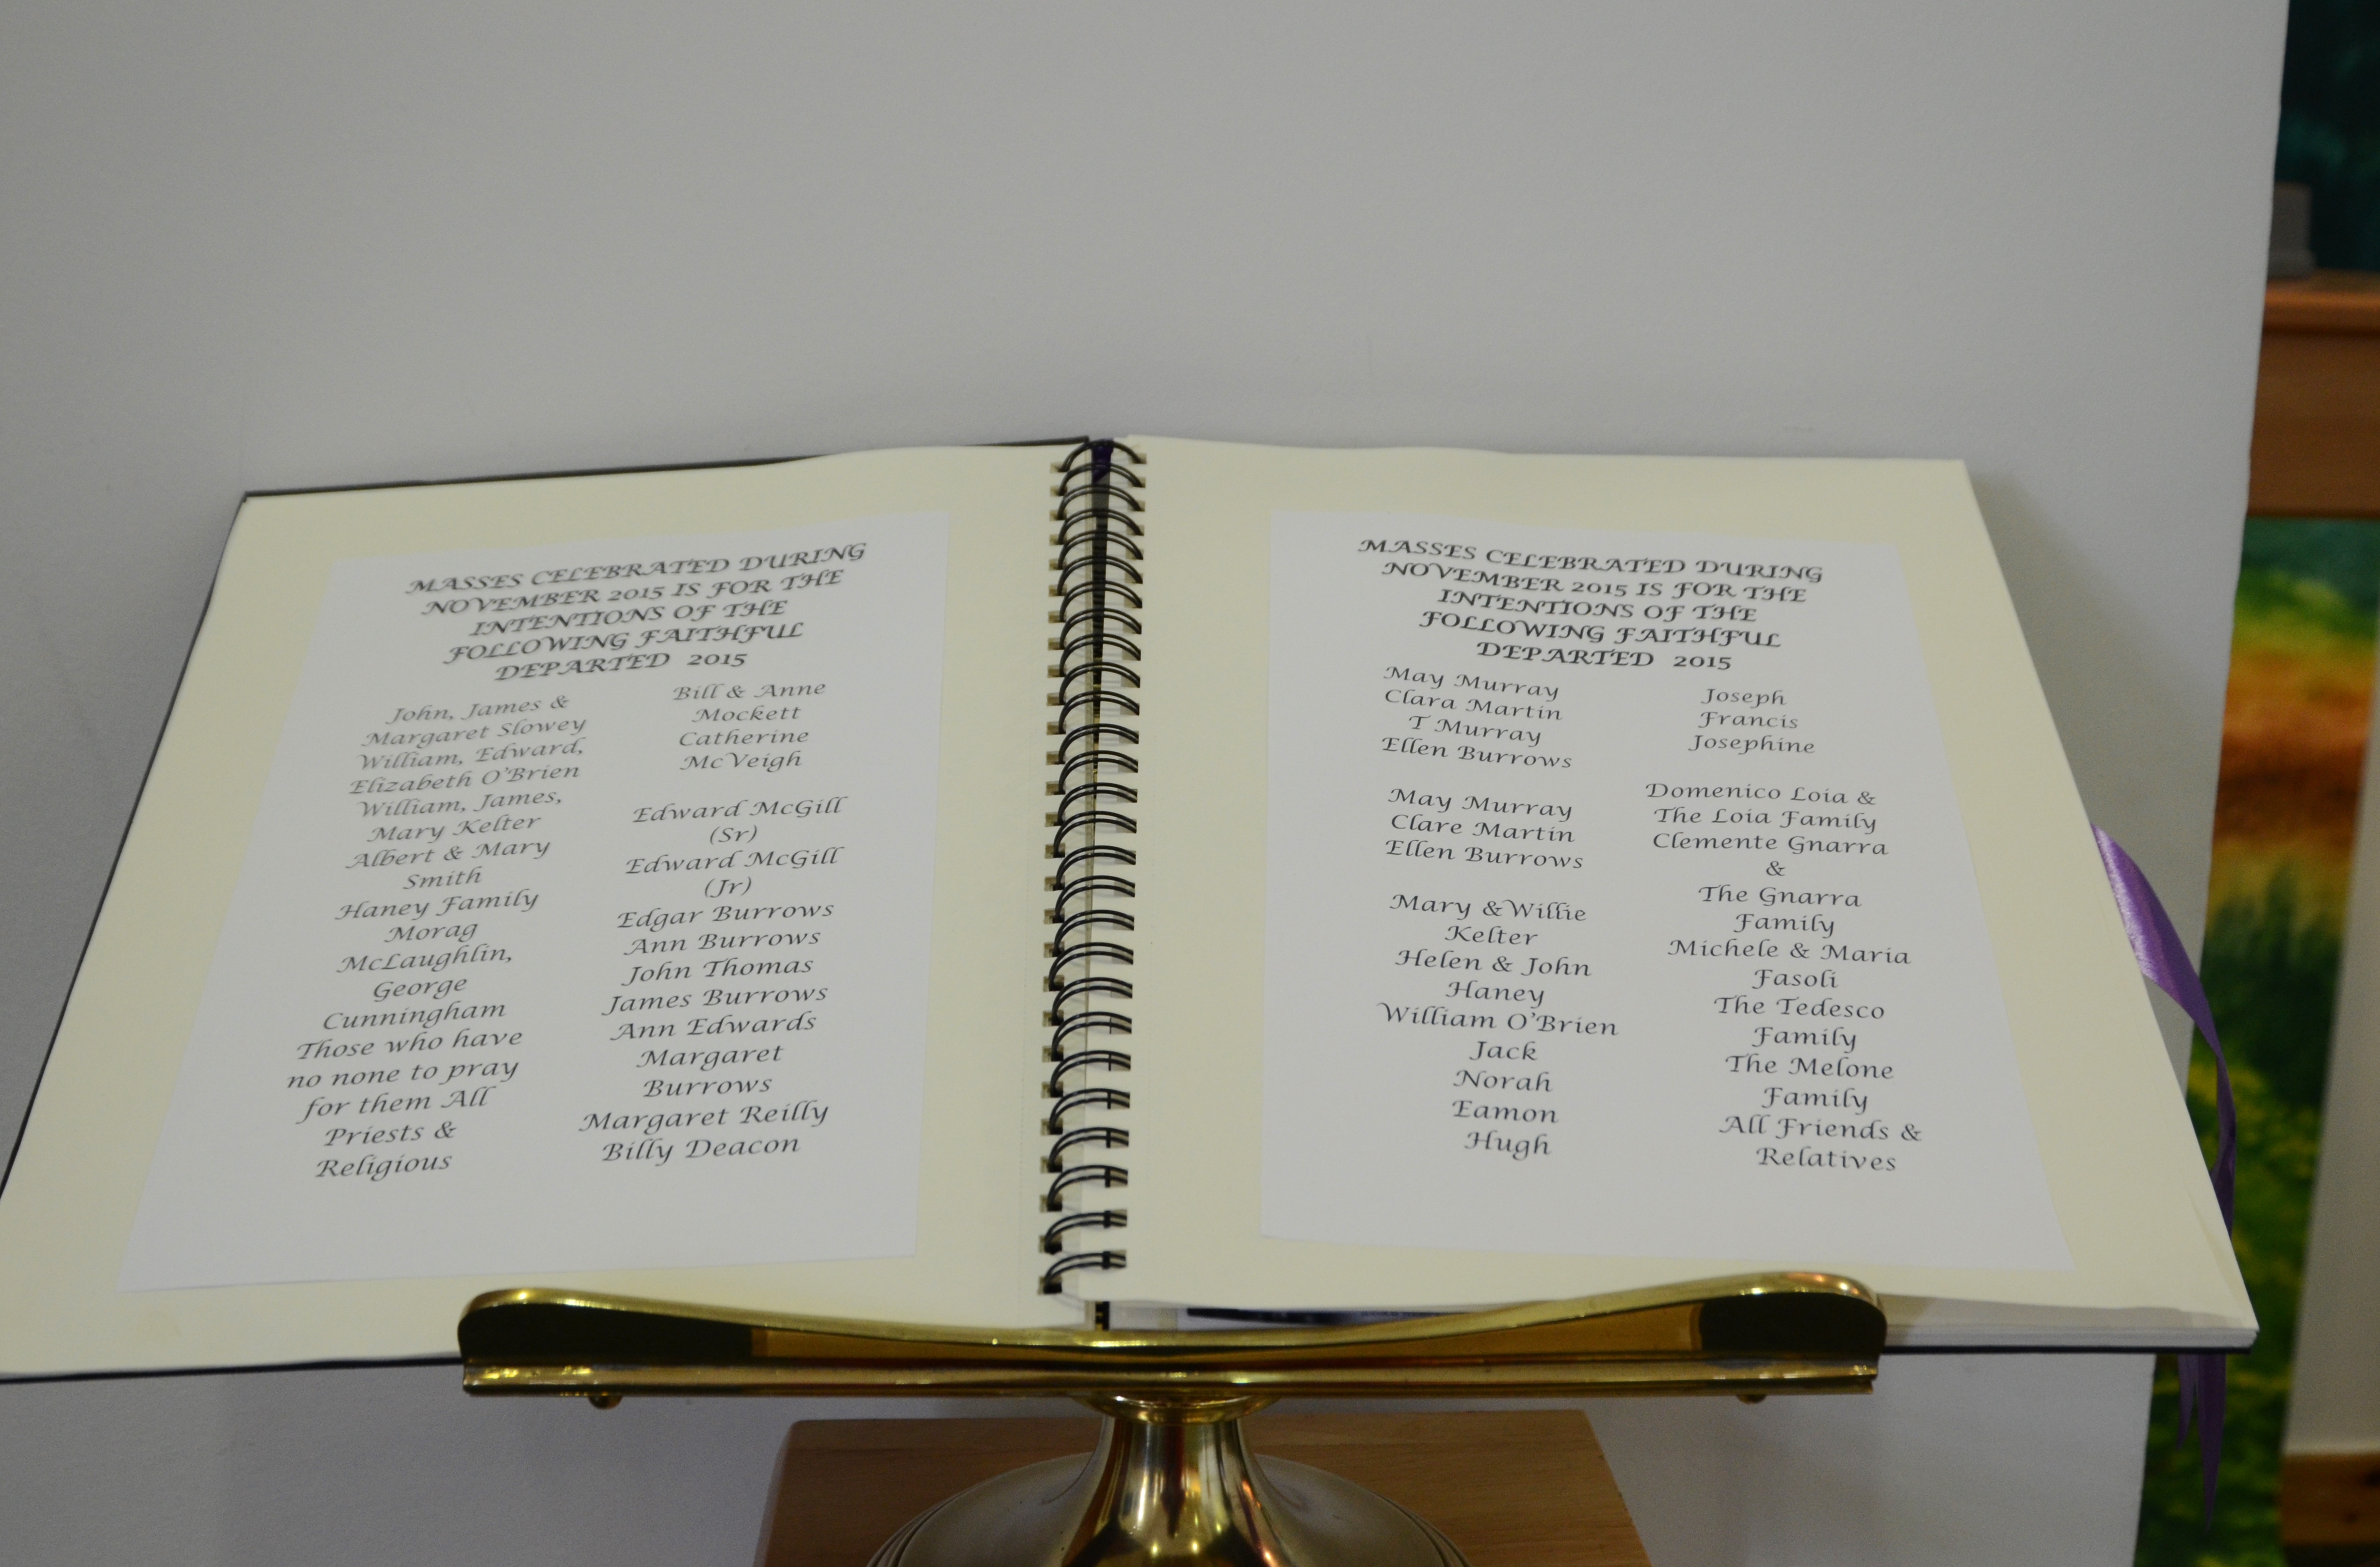 MASSES CELEBRATED DURING
NOVEMBER 2015 IS FOR THE
INTENTIONS OF THE
FOLLOWING FAITHFUL
DEPARTED 2015
John, James &
Margaret Slowey
William, Edward,
Elizabeth O'Brien
William, James,
Mary Kelter
Albert & Mary
Smith
Haney Family
Morag
McLaughlin,
George
Cunningham
Those who have
no none to pray
for them All
Priests &
Religious
Bill & Anne
Mockett
Catherine
McVeigh
Edward McGill
(Sr)
Edward McGill
(Jr)
Edgar Burrows
Ann Burrows
John Thomas
James Burrows
Ann Edwards
Margaret
Burrows
Margaret Reilly
Billy Deacon
MASSES CELEBRATED DURING
NOVEMBER 2015 IS FOR THE
INTENTIONS OF THE
FOLLOWING FAITHFUL
DEPARTED 2015
May Murray
Clara Martin
T Murray
Ellen Burrows
May Murray
Clare Martin
Ellen Burrows
Mary &Willie
Kelter
Helen & John
Haney
William O'Brien
Jack
Norah
Eamon
Hugh
Joseph
Francis
Josephine
Domenico Loia &
The Loia Family
Clemente Gnarra
&
The Gnarra
Family
Michele & Maria
Fasoli
The Tedesco
Family
The Melone
Family
All Friends &
Relatives